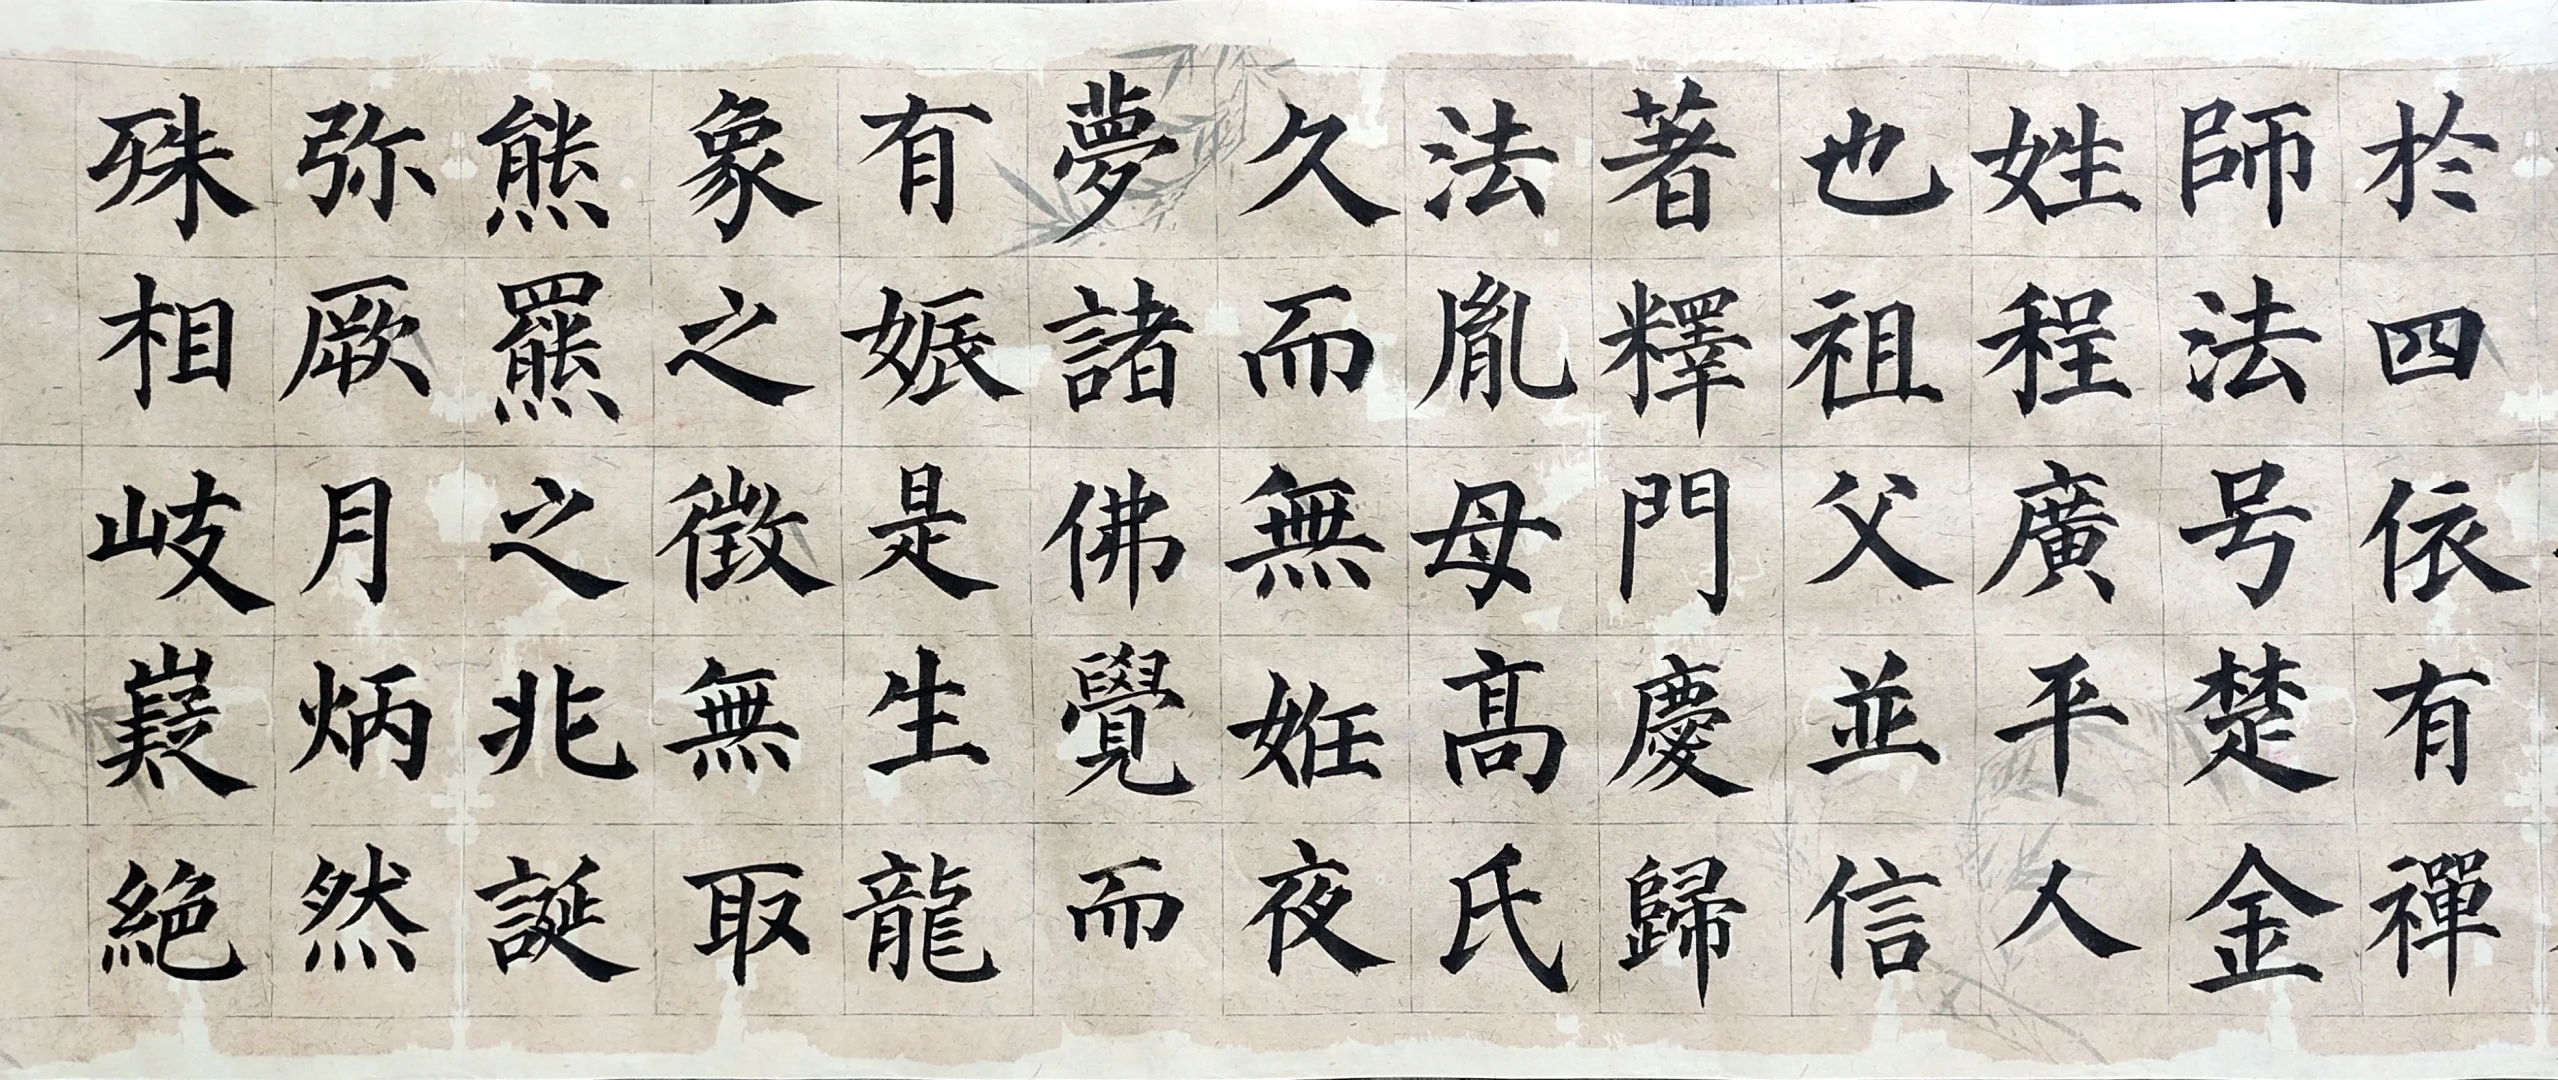 於四依有禪
師法号楚金
姓程廣平人
也祖父並信
著釋門慶歸
法胤母高氏
久而無姙夜
夢諸佛覺而
有娠是生龍
象之徵無取
熊羆之兆誕
弥厥月炳然
殊相岐嶷絕